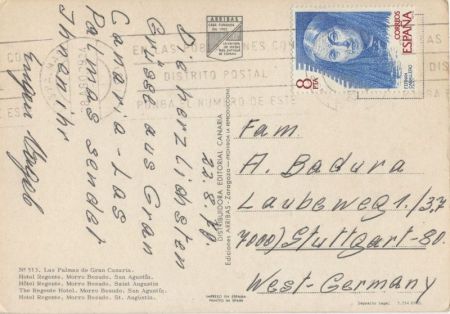 22.8.78.
Die herzlichsten
Grüsse aus Gran
Canaria - Las
Palmas sendet
Ihnen Ihr
Eugen
Nº 513. Las Palmas de Gran Canaria.
Hotel Regente, Morro Besudo, San Agustín.
Hôtel Regente, Morro Besudo, Saint Augustin
The Regente Hotel, Morro Besudo, San Agustín.
Hotel Regente, Morro Besudo, St. Augustin.
ARRIBAS
DISTRIBUIDORA EDITORIAL CANARIA
Ediciones ARRIBAS - Zaragoza - PROHIBIDA LA REPRODUCCION
EN LAS POBLACIONES CON
DISTRITO POSTAL
PONGA EL NUMERO DE ESTE
CORREOS
ESPAÑA
8
PTA
Fam.
A. Badura
Laubeweg 1./37
7000) Stuttgart-80.
West-Germany
IMPRESO EN ESPAÑA
PRINTED IN SPAIN
Depósito Legal